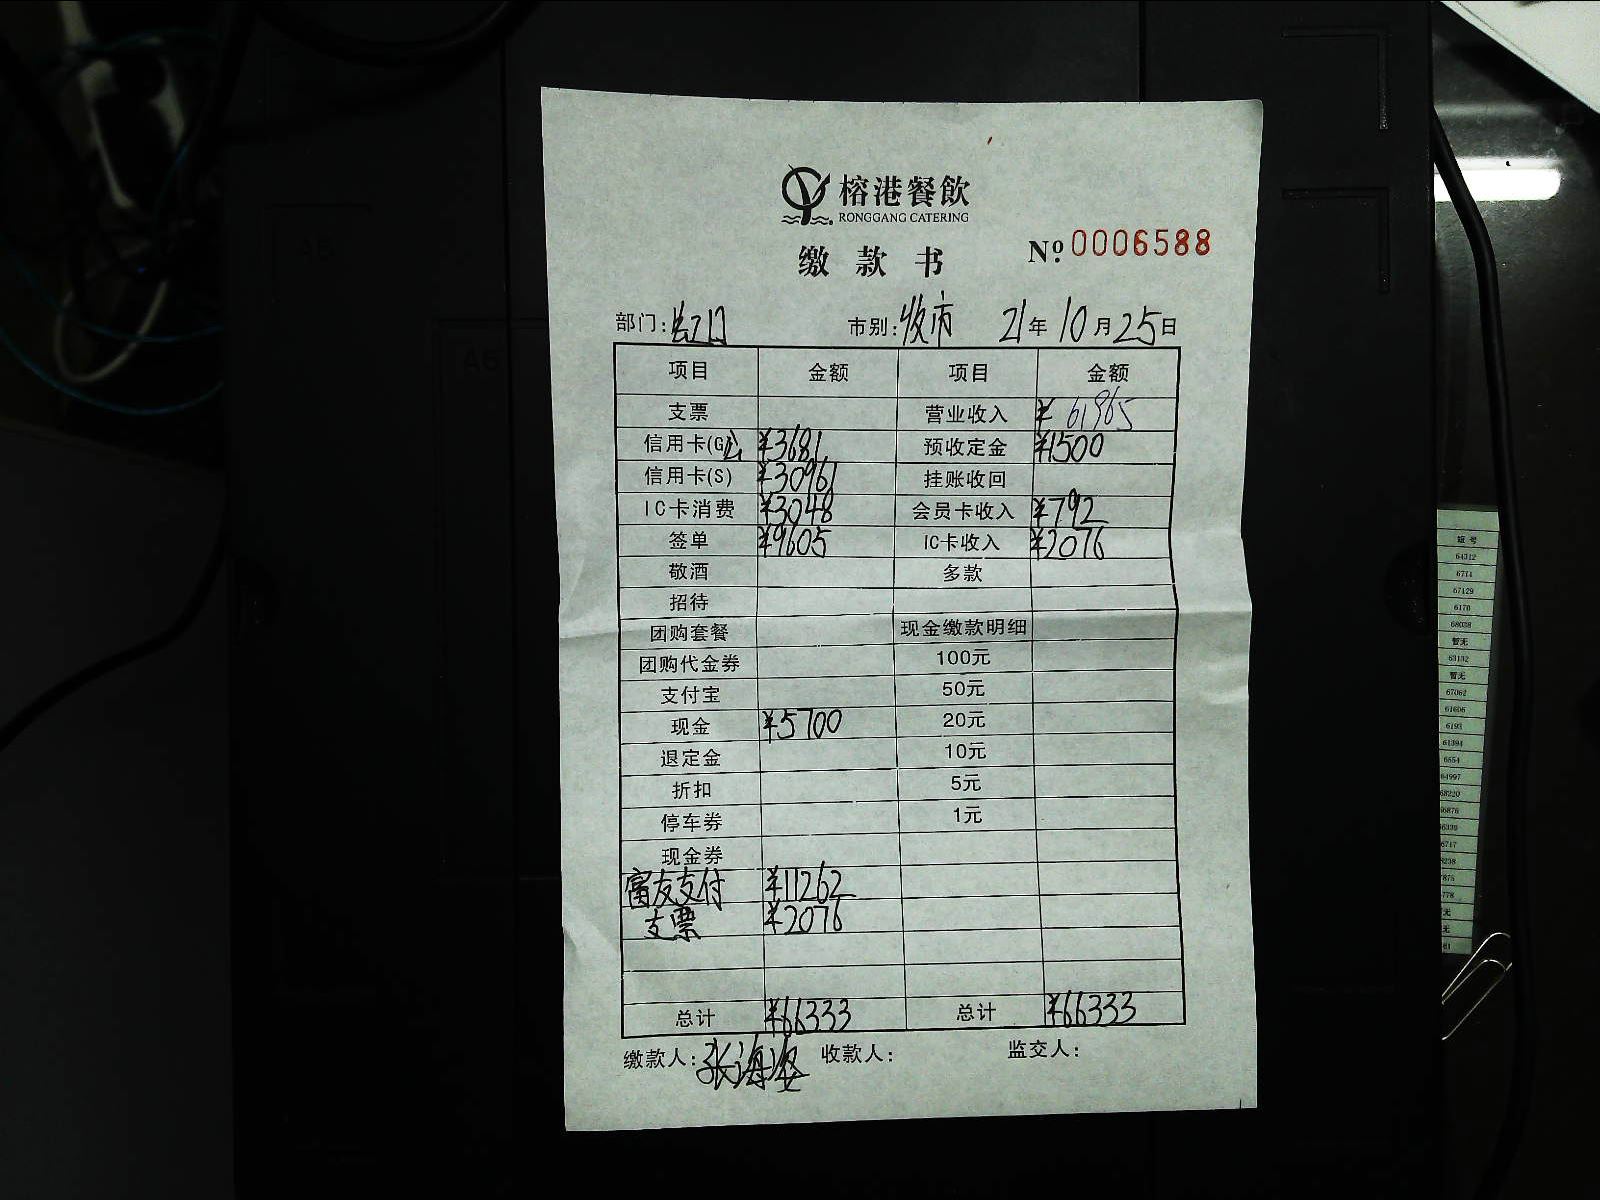 榕港餐飲
RONGGANG CATERING
缴款书 Nº 0006588
部门:虹口 市别:收市 21年10月25日
项目 金额 项目 金额
支票 营业收入 ¥61965
信用卡(G) ¥3681 预收定金 ¥1500
信用卡(S) ¥30961 挂账收回
IC卡消费 ¥3048 会员卡收入 ¥792
签单 ¥9605 IC卡收入 ¥2076
敬酒 多款
招待
团购套餐 现金缴款明细
团购代金券 100元
支付宝 50元
现金 ¥5700 20元
退定金 10元
折扣 5元
停车券 1元
现金券
富友支付 ¥11262
支票 ¥2076
总计 ¥66333 总计 ¥66333
缴款人:张海 收款人: 监交人:
短号
64312
6714
67129
6170
68038
暂无
63132
暂无
67062
61606
6193
61394
6654
64997
68220